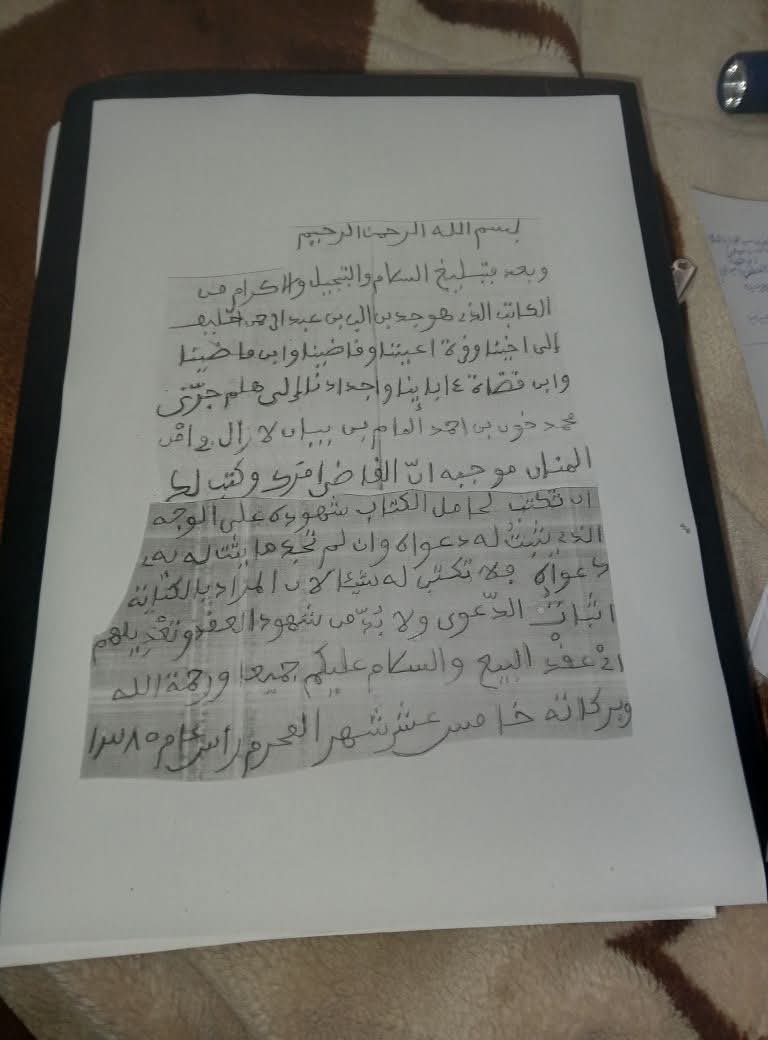 بسم الله الرحمن الرحيم
وبعد فتبليغ السلام والتبجيل والاكرام من
الكاتب الذي هو جد بن الب بن عبد الرحمن
إلى اخينا وقرة اعيننا وقاضينا وابن قاضينا
وابن قضاة ءاباينا واجدادنا إلى هلم جرّى
محمد خون بن احمد العام بن بيبان لا زال في امن
المنان موجبه انّ القاضي امرك وكتب لك
ان تكتب لحامل الكتاب شهوده على الوجه
الذي يثبت له دعواه وان لم تجد ما يثبت له به
دعواه فلا تكتب له شيئا لان المراد بالكتابة
اثبات الدّعوى ولا بُدّ من شهود العقد وتعديلهم
اي عقد البيع والسلام عليكم جميعا ورحمة الله
وبركاته خامس عشر شهر المحرم رأس عام